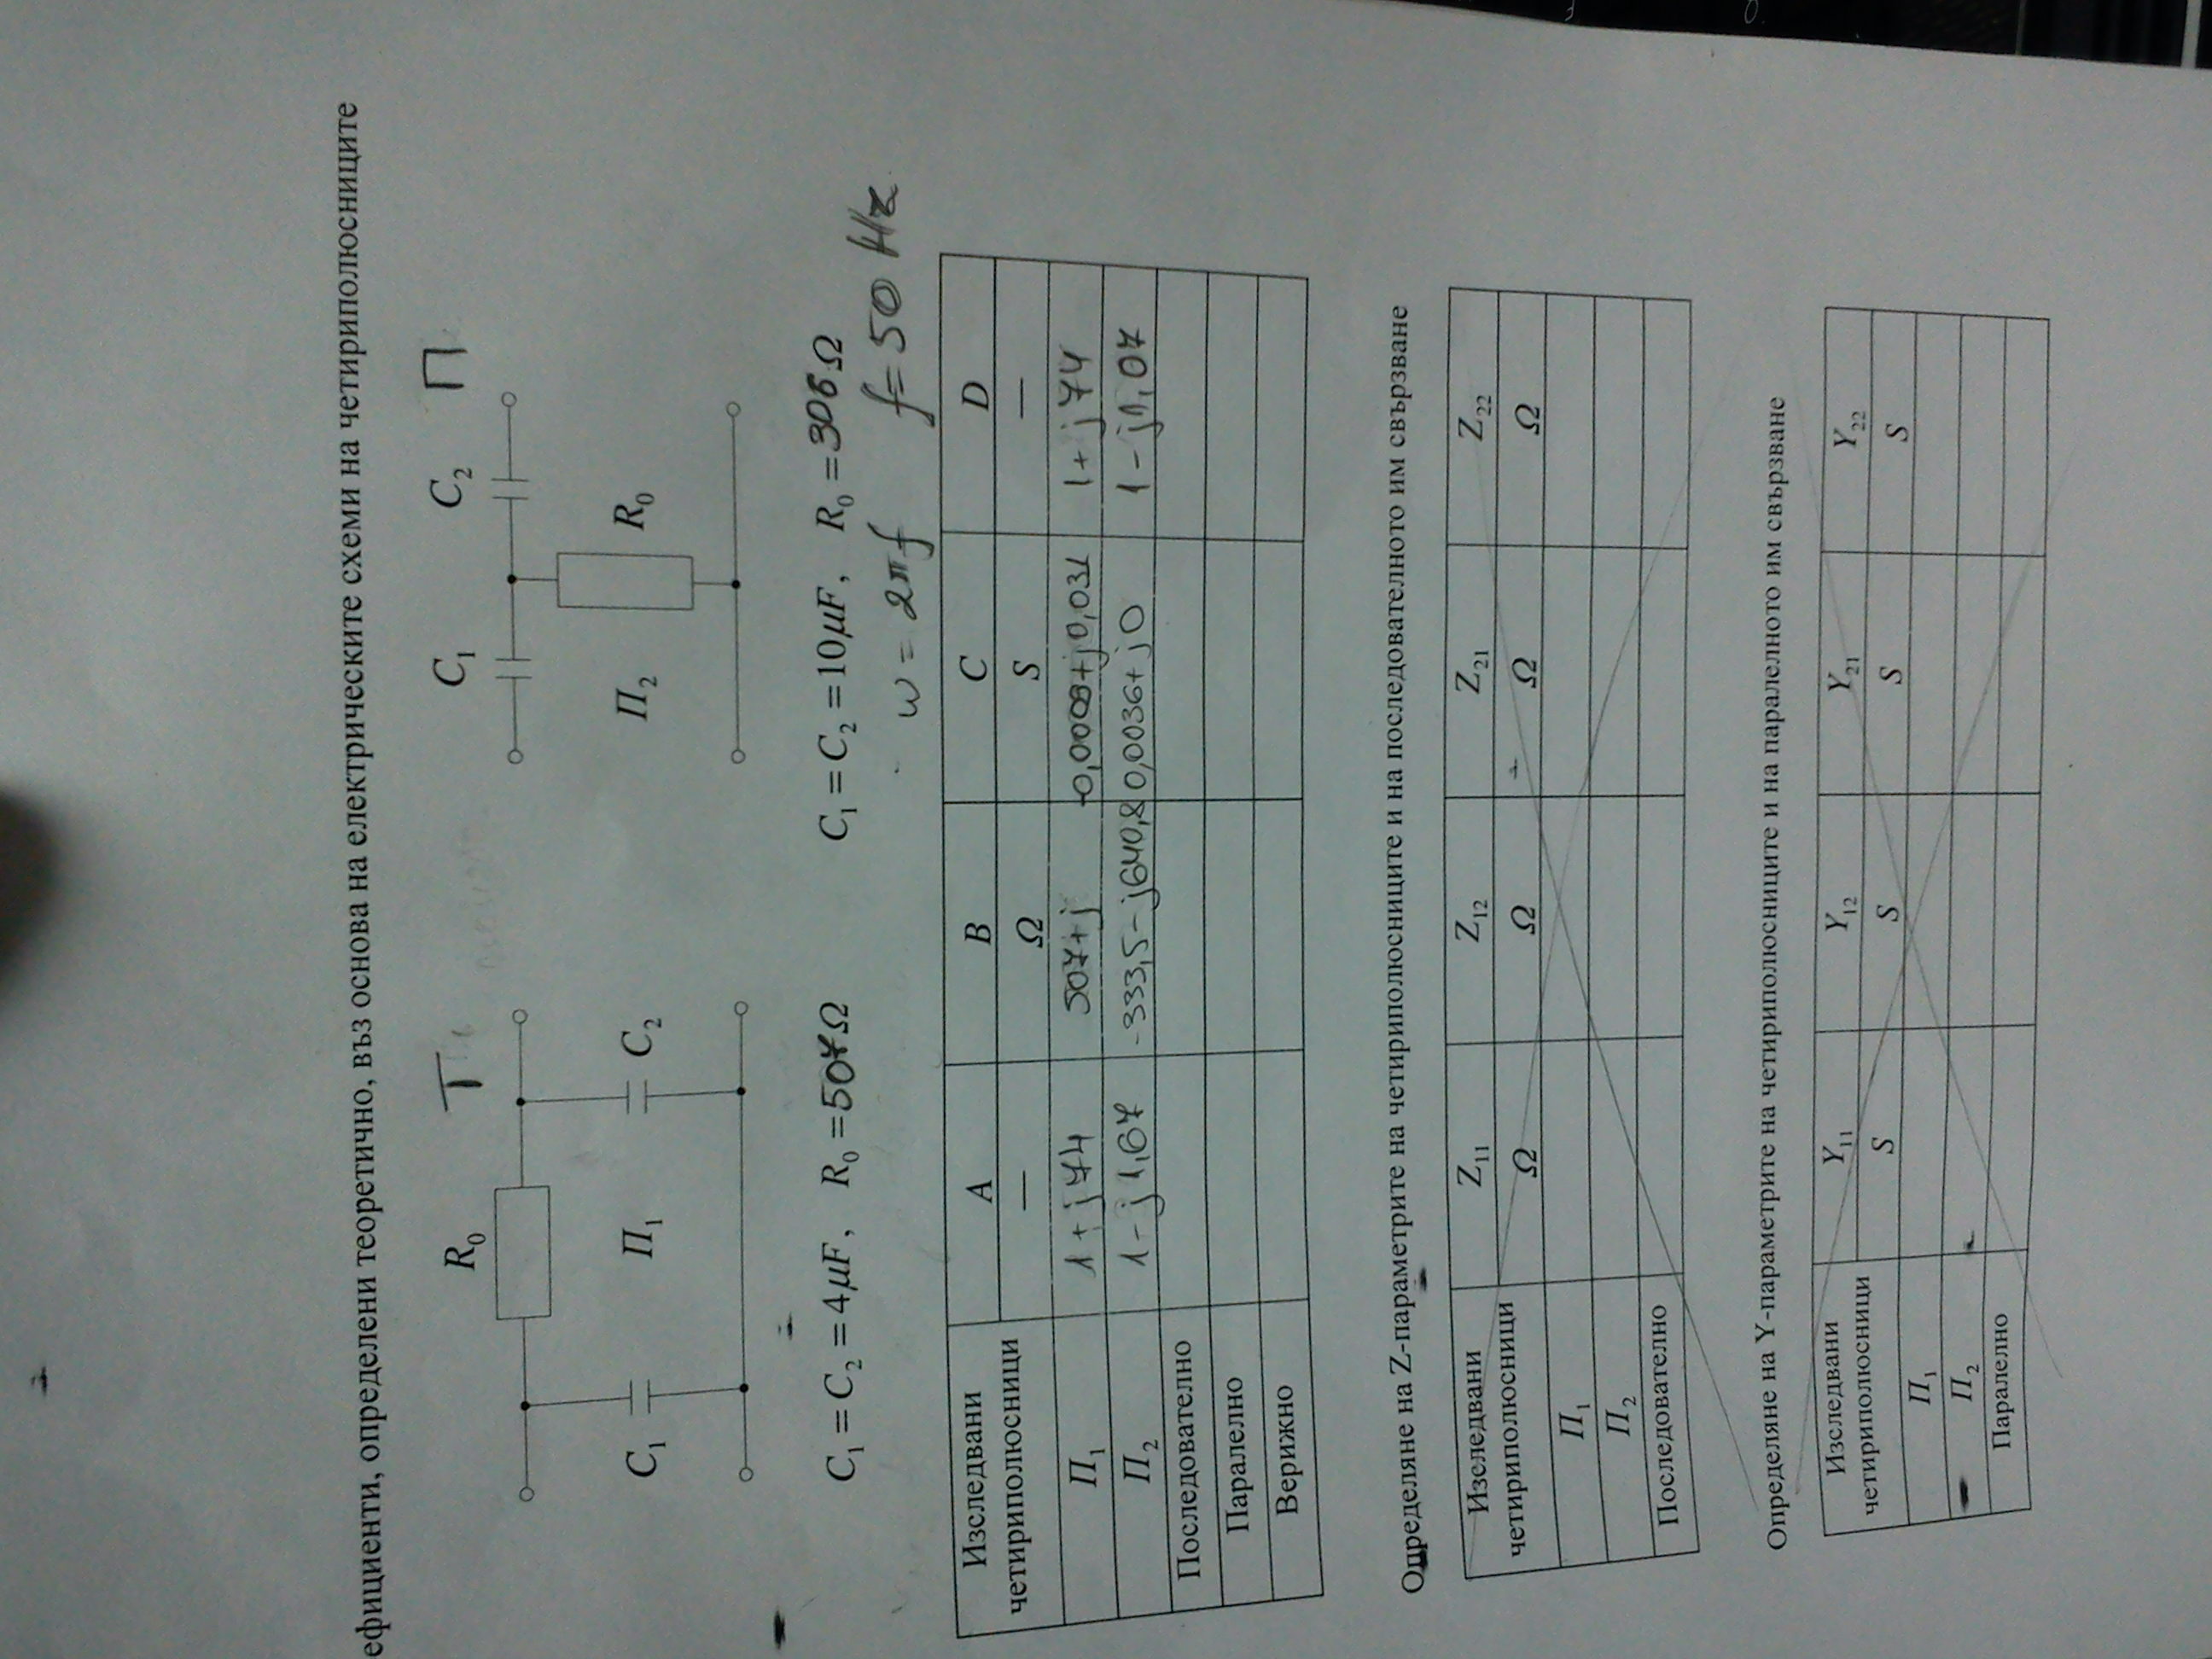 ефициенти, определени теоретично, въз основа на електрическите схеми на четириполюсниците
T
П
R₀
C₁ C₂
C₁ П₁ C₂
П₂ R₀
C₁ = C₂ = 4μF, R₀ = 507Ω
C₁ = C₂ = 10μF, R₀ = 306Ω
w = 2πf f = 50 Hz
Изследвани четириполюсници A B C D
— Ω S —
П₁ 1 + j74 507 + j -0,0008 + j0,031 1 + j74
П₂ 1 - j1,67 -333,5 - j640,8 0,0036 + j0 1 - j1,07
Последователно
Паралелно
Верижно
Определяне на Z-параметрите на четириполюсниците и на последователното им свързване
Изследвани четириполюсници Z₁₁ Z₁₂ Z₂₁ Z₂₂
Ω Ω Ω Ω
П₁
П₂
Последователно
Определяне на Y-параметрите на четириполюсниците и на паралелното им свързване
Изследвани четириполюсници Y₁₁ Y₁₂ Y₂₁ Y₂₂
S S S S
П₁
П₂
Паралелно